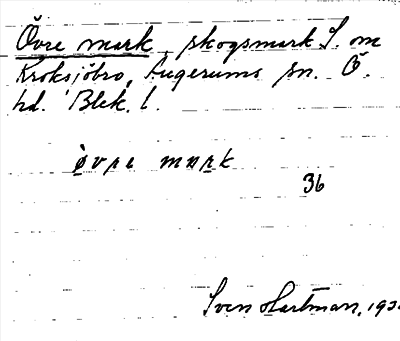 Övre mark, skogsmark S. om
Kroksjöbro, Augerums sn. Ö.
hd. Blek. l.
òvre mark
36
Sven Hartman, 193